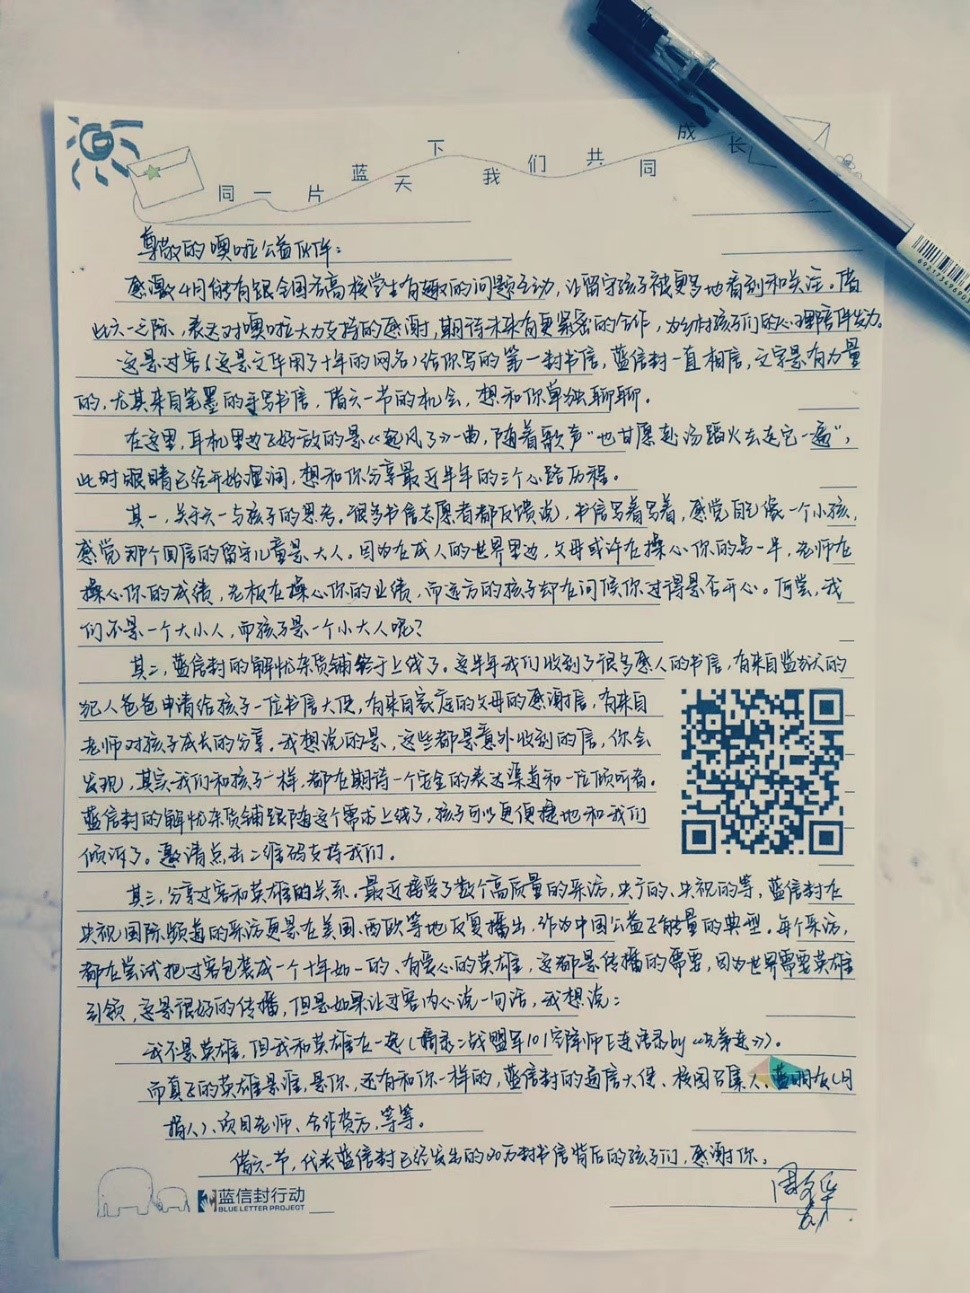 同一片蓝天下我们共同成长
尊敬的噢啦公益伙伴：
感激4月能有跟全国各高校学生有趣的问题互动，让留守孩子被更多地看到和关注。借
此六一之际，表达对噢啦大力支持的感谢，期待未来有更紧密的合作，为乡村孩子们的心理陪伴发力。
这是过客（这是文华用了十年的网名）给你写的第一封书信，蓝信封一直相信，文字是有力量
的，尤其来自笔墨的手写书信，借六一节的机会，想和你单独聊聊。
在这里，耳机里边正好放的是《起风了》一曲，随着歌声“也甘愿赴汤蹈火去走它一遍”，
此时眼睛已经开始湿润，想和你分享最近半年的三个心路历程。
其一，关于六一与孩子的思考。很多书信志愿者都反馈说，书信写着写着，感觉自己像一个小孩，
感觉那个回信的留守儿童是大人。因为在成人的世界里边，父母或许在操心你的另一半，老师在
操心你的成绩，老板在操心你的业绩，而远方的孩子却在问候你过得是否开心。何尝，我
们不是一个大小人，而孩子是一个小大人呢？
其二，蓝信封的解忧杂货铺终于上线了。这半年我们收到了很多感人的书信，有来自监狱犬的
犯人爸爸申请给孩子一位书信大使，有来自家庭的父母的感谢信，有来自
老师对孩子成长的分享。我想说的是，这些都是意外收到的信，你会
发现，其实我们和孩子一样，都在期待一个安全的表达渠道和一位倾听者。
蓝信封的解忧杂货铺跟随这个需求上线了，孩子可以更便捷地和我们
倾诉了。邀请点击二维码支持我们。
其三，分享过客和英雄的关系。最近接受了数个高质量的采访，央广的、央视的等，蓝信封在
央视国际频道的采访更是在美国、西欧等地反复播出，作为中国公益正能量的典型。每个采访，
都在尝试把过客包装成一个十年如一的、有爱心的英雄，这都是传播的需要，因为世界需要英雄
引领，这是很好的传播，但是如果让过客内心说一句话，我想说：
我不是英雄，但我和英雄在一起（摘录二战盟军101空降师E连语录by《兄弟连》）。
而真正的英雄是谁，是你，还有和你一样的，蓝信封的通信大使、校园召集人、蓝朋友（月
捐人）、项目老师、合作资方，等等。
借六一节，代表蓝信封已经发出的20万封书信背后的孩子们，感谢你。
周文华
蓝信封行动
BLUE LETTER PROJECT